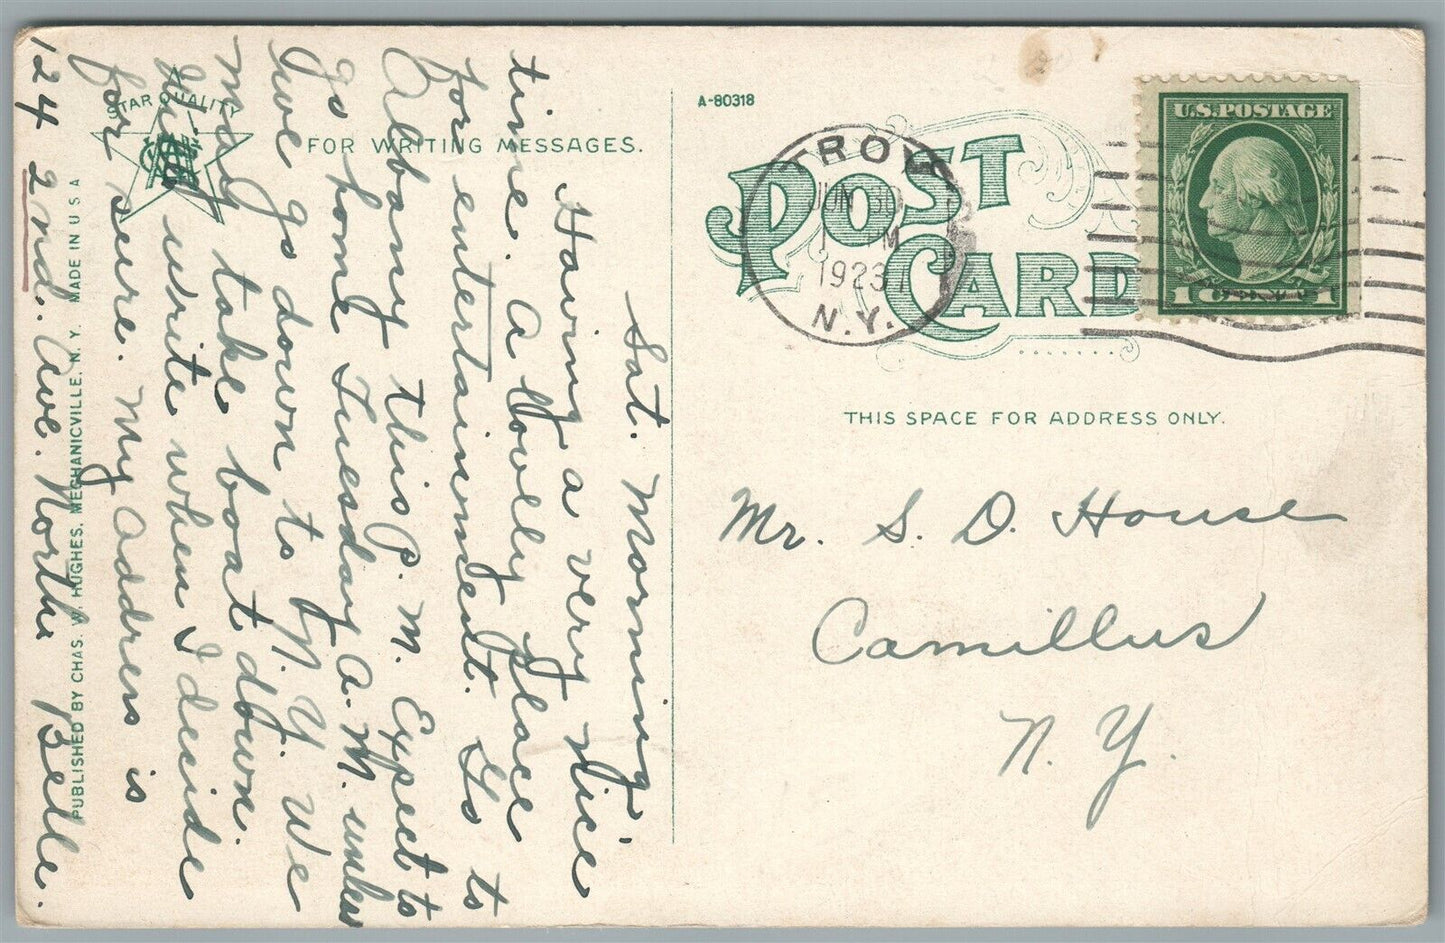 Sat. Morning
Having a very nice
time. A lovelly place
for entertainment. Go to
Albany this P. M. Expect to
go home Tuesday A. M. unless
we go down to N. Y. We
may take boat down.
Will write when I decide
for sure. My address is
124 2nd. Ave. North. Belle.
STAR QUALITY
FOR WRITING MESSAGES.
PUBLISHED BY CHAS. W. HUGHES, MECHANICVILLE, N. Y. MADE IN U S A
A-80318
POST CARD
TROY
JUN 30
1 M
1923
N.Y.
U.S. POSTAGE
1 CENT 1
THIS SPACE FOR ADDRESS ONLY.
Mr. S. D. House
Camillus
N. Y.